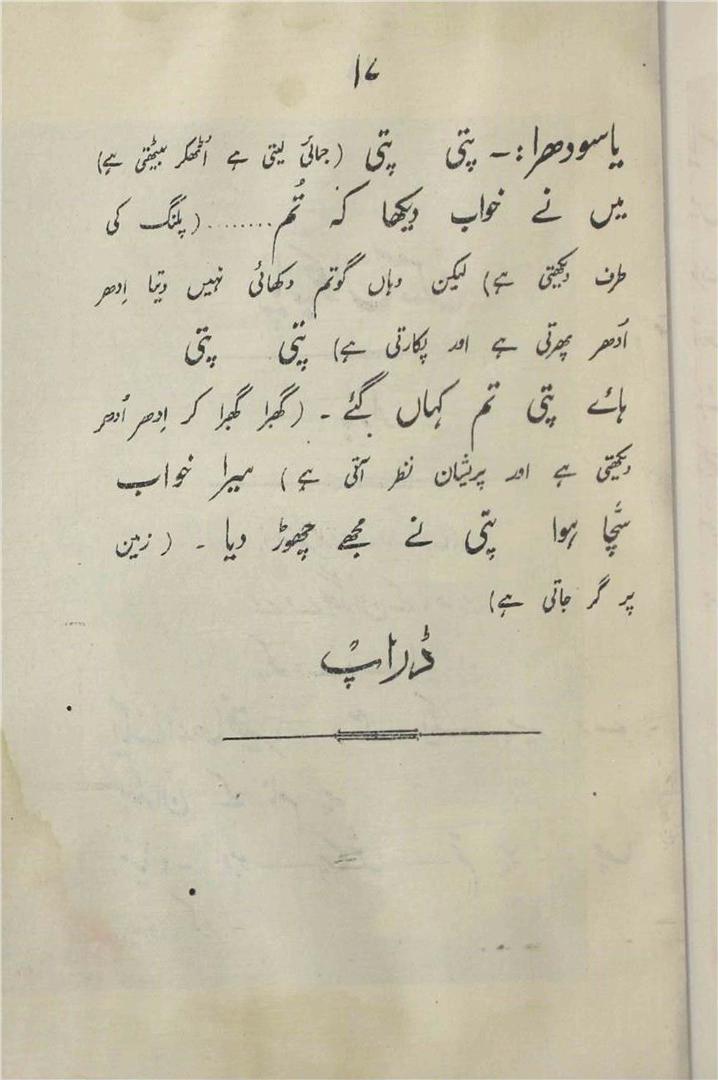 ۱۷
یاسودھرا:۔ پتی پتی (جمائی لیتی ہے اُٹھکر بیٹھتی ہے)
میں نے خواب دیکھا کہ تُم........(پلنگ کی
طرف دیکھتی ہے) لیکن وہاں گوتم دکھائی نہیں دیتا اِدھر
اُدھر پھرتی ہے اور پکارتی ہے) پتی پتی
ہائے پتی تم کہاں گئے ۔ (گھبرا گھبرا کر اِدھر اُدھر
دیکھتی ہے اور پریشان نظر آتی ہے) میرا خواب
سچّا ہوا پتی نے مجھے چھوڑ دیا ۔ (زمین
پر گر جاتی ہے)
ڈراپ